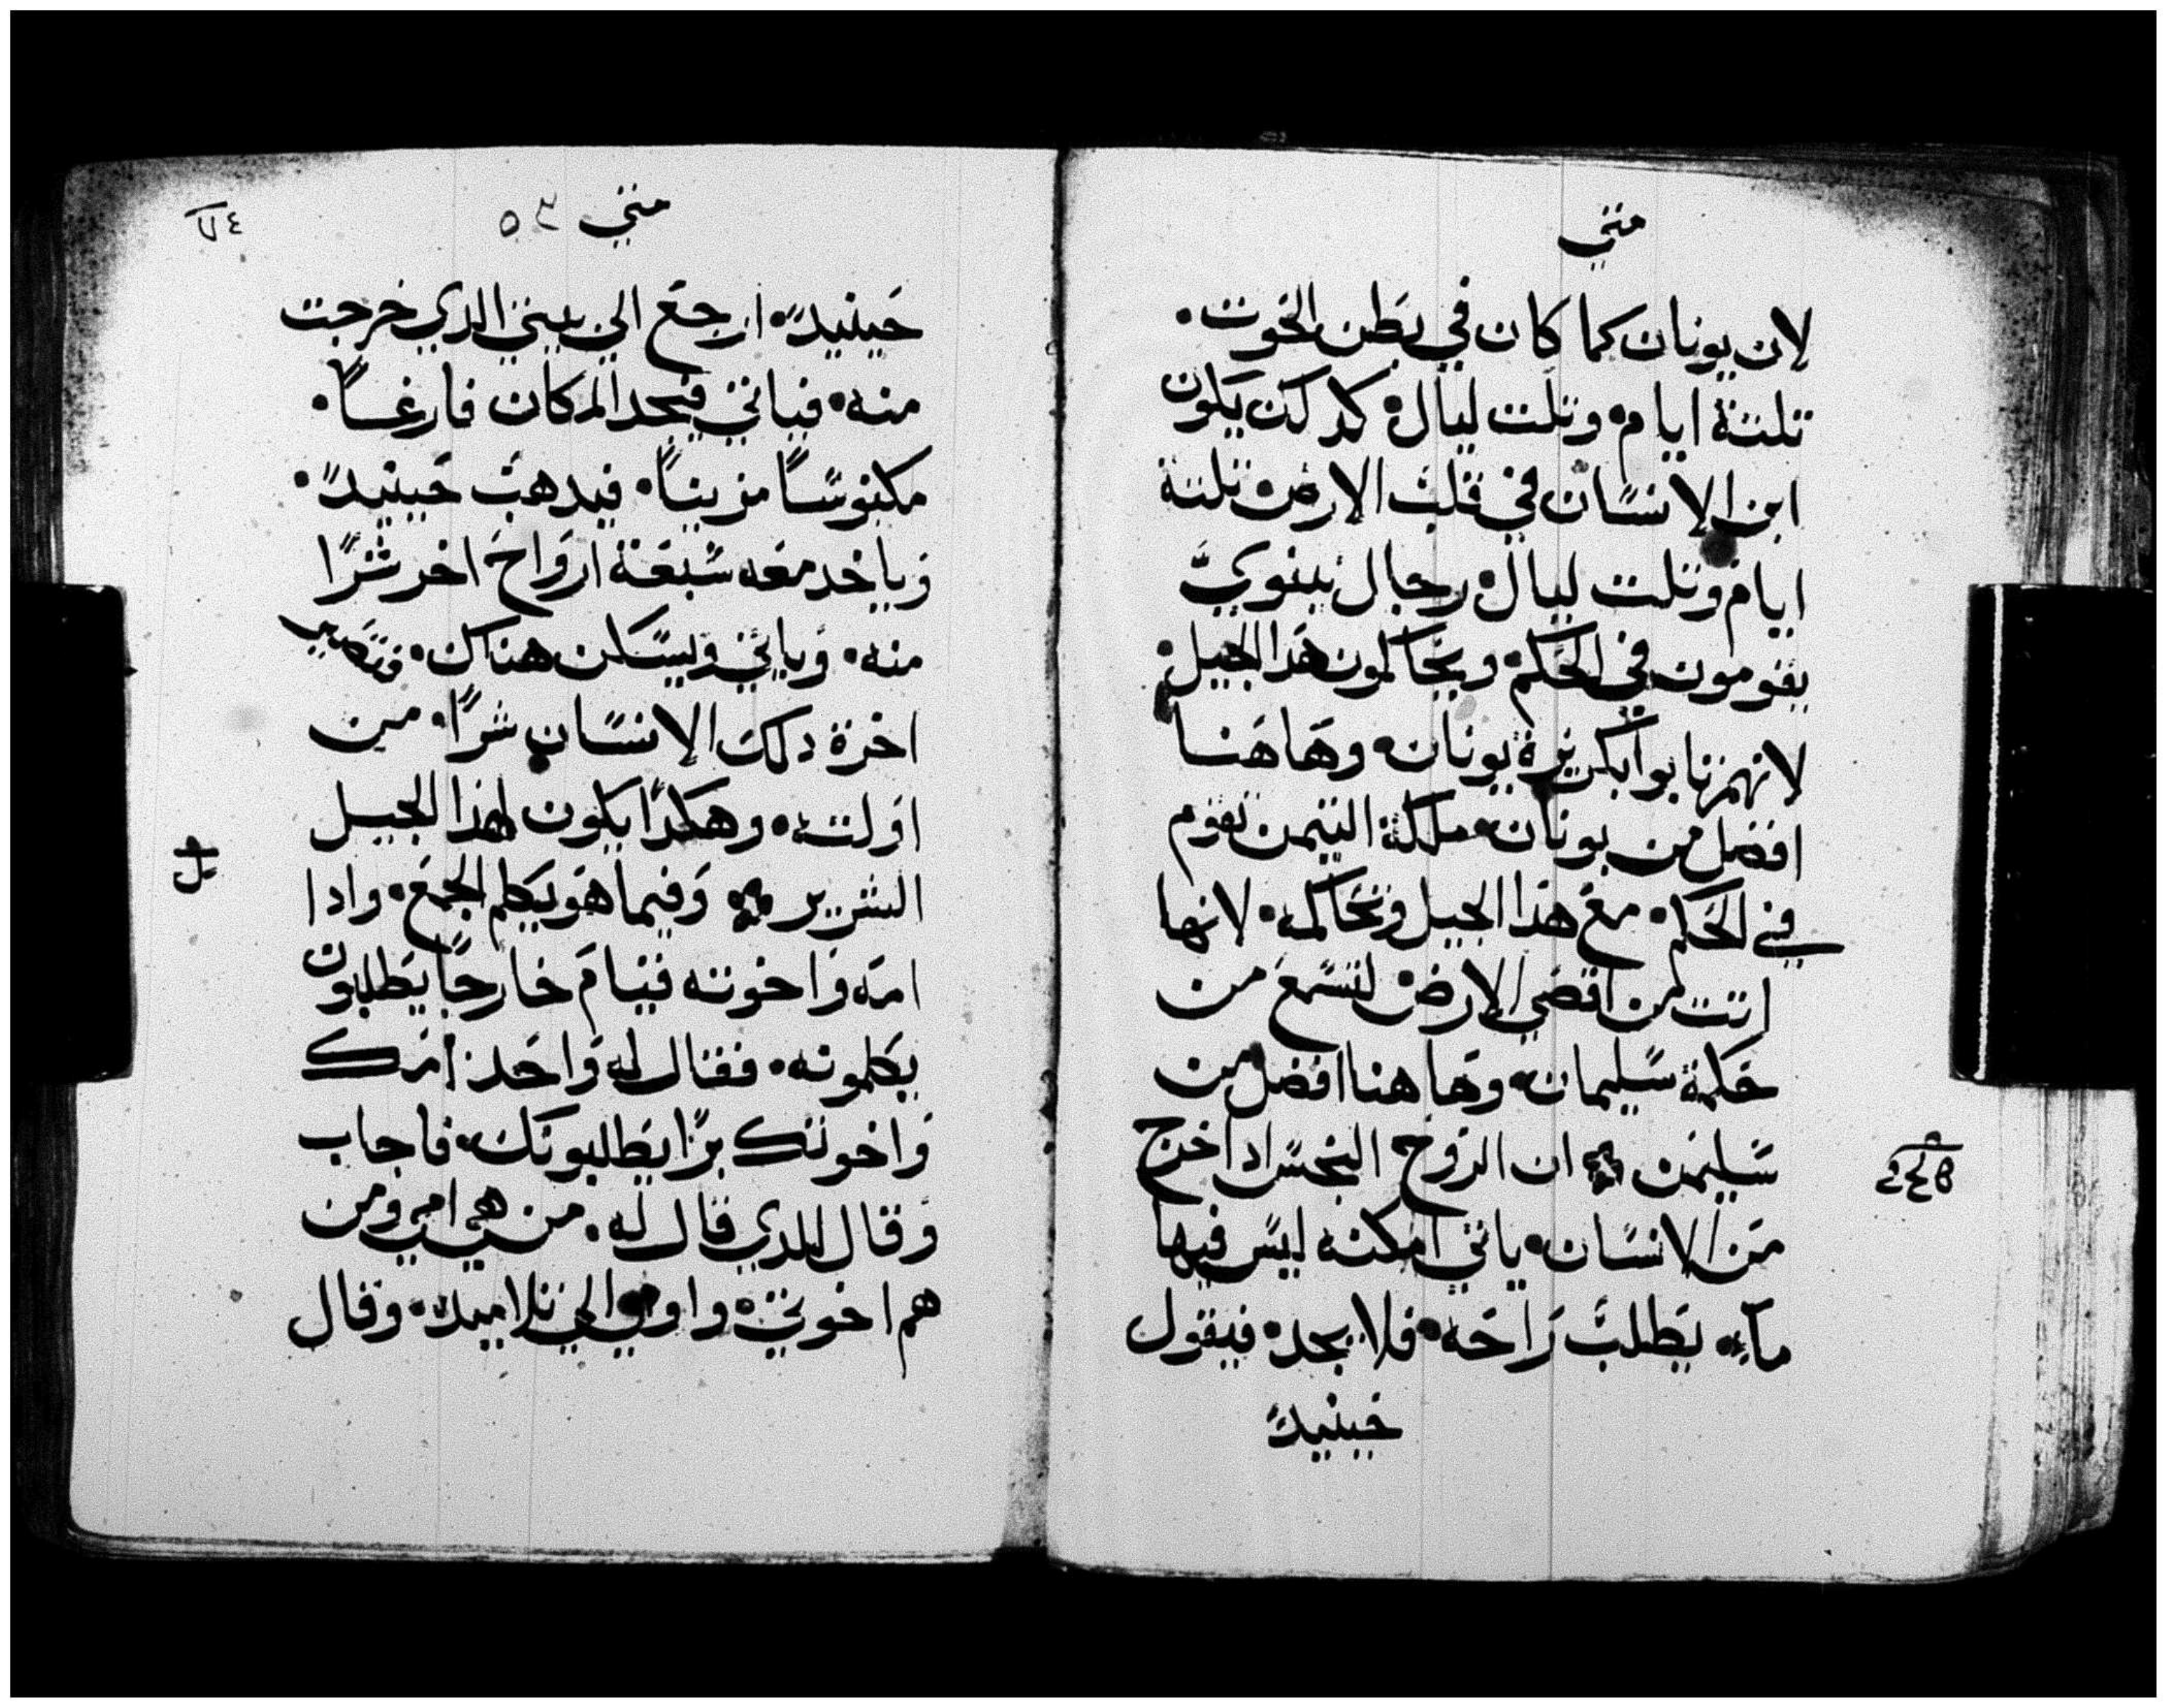 متي
لان يونان كما كان في بطن الحوت.
تلتة ايام. وتلت ليال. كدلك يكون
ابن الانسان في قلب الارض تلتة
ايام وتلت ليال. رجال نينوي
يقومون في الحكم. ويحاكمون هدا الجيل.
لانهم تابوا بكريزة يونان. وها هنا
افضل من يونان. ملكة التيمن تقوم
في الحكم. مع هدا الجيل وتحاكمه. لانها
اتت من اقصي الارض لتسمع من
حكمة سليمان. وها هنا افضل من
سليمن ان الروح النجس ادا خرج
من الانسان. ياتي امكنه ليس فيها
مآء. يطلب راحه. فلا يجد. فيقول
حينيدً
متي ٥٣
حينيدً. ارجع الي بيتي الدي خرجت
منه. فياتي فيجد المكان فارغاً.
مكنوسًا مزيناً. فيدهب حينيدً.
وياخد معه سبعة ارواح اخر شرًا
منه. وياتي ويسكن هناك. فتصير
اخرة دلك الانسان شرًا. من
اولته. وهكدا يكون لهدا الجيل
الشرير وفيما هو يكلم الجمع. وادا
امه واخوته قيام خارجًا يطلبون
يكلمونه. فقال له واحد امك
واخوتك برًا يطلبونك. فاجاب
وقال للدي قال له. من هي امي ومن
هم اخوتي. واومي الي تلاميده. وقال